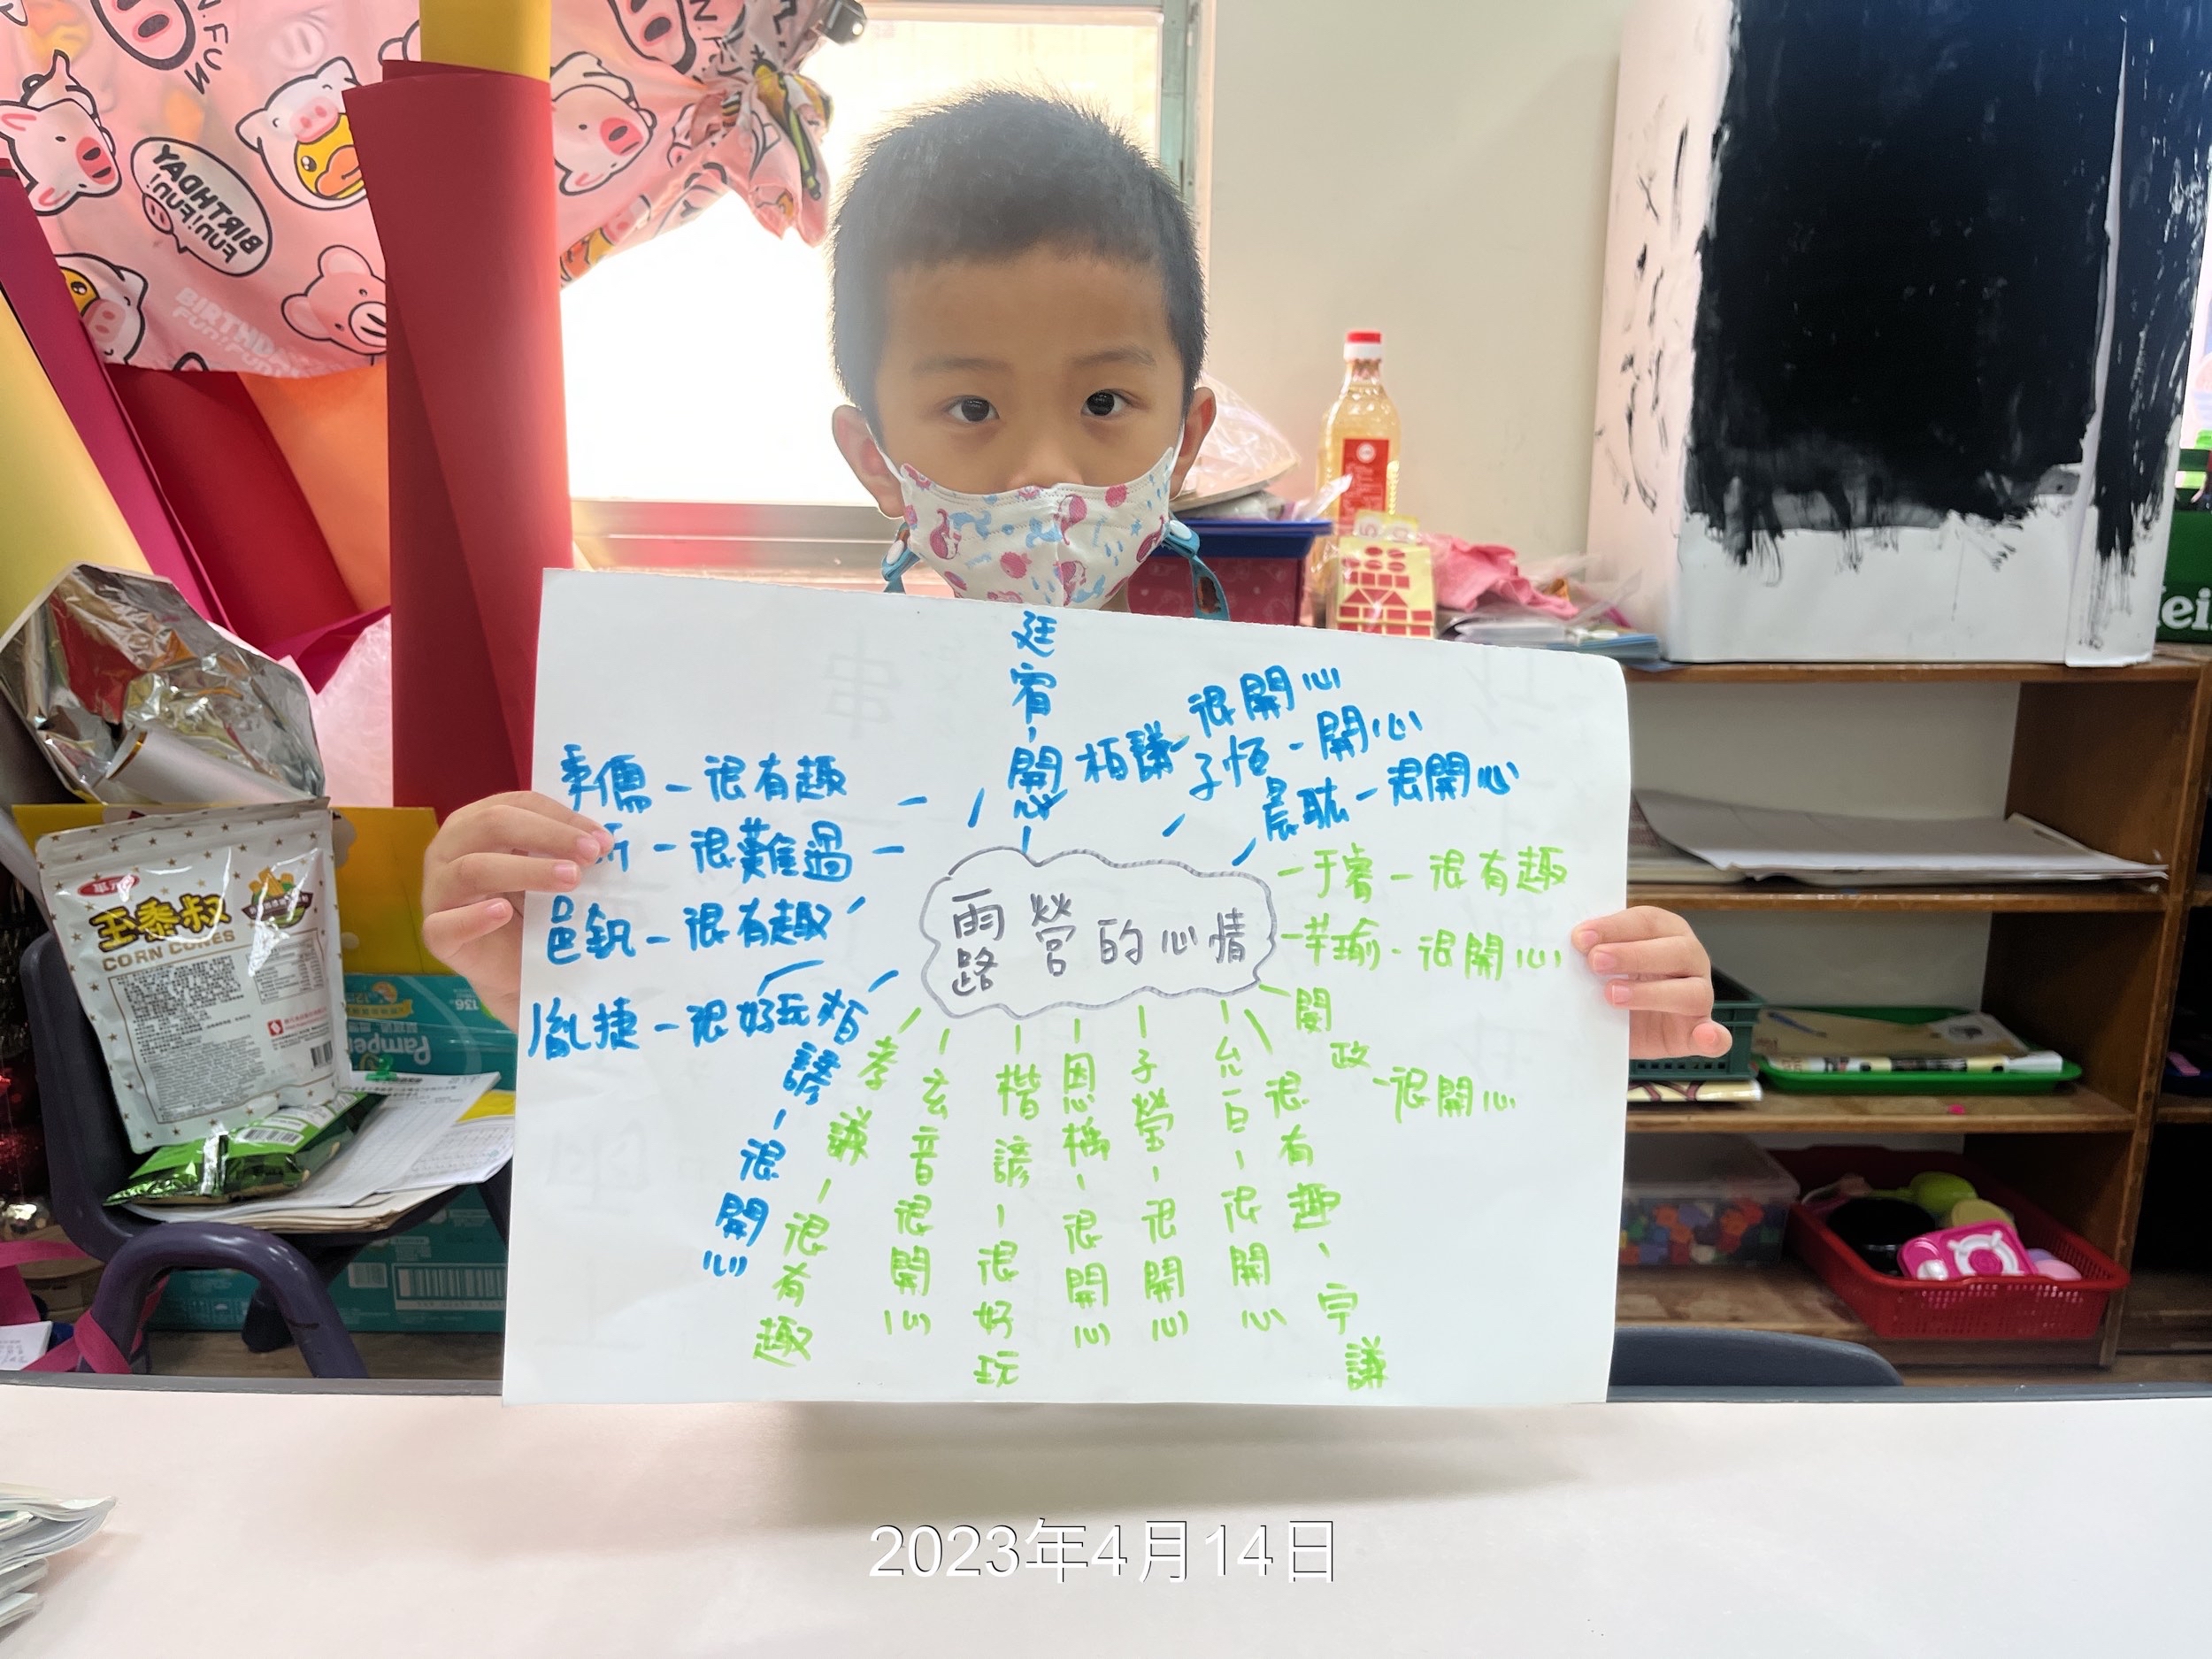 BIRTHDAY
FUN!FUN!
BIRTHDAY
廷宥-開心
柏謙-很開心
子恒-開心
晨耘-很開心
秉儒-很有趣
昕-很難過
-很有趣
胤捷-很好玩
雨 營的心情
路
于睿-很有趣
芊瑜-很開心
開政-很開心
諺-很開心
孝謙-很有趣
玄音很開心
楷諺-很好玩
恩稱-很開心
子瑩-很開心
-很開心
很有趣-宇謙
玉黍叔
CORN CONES
Pampers
Hei
2023年4月14日